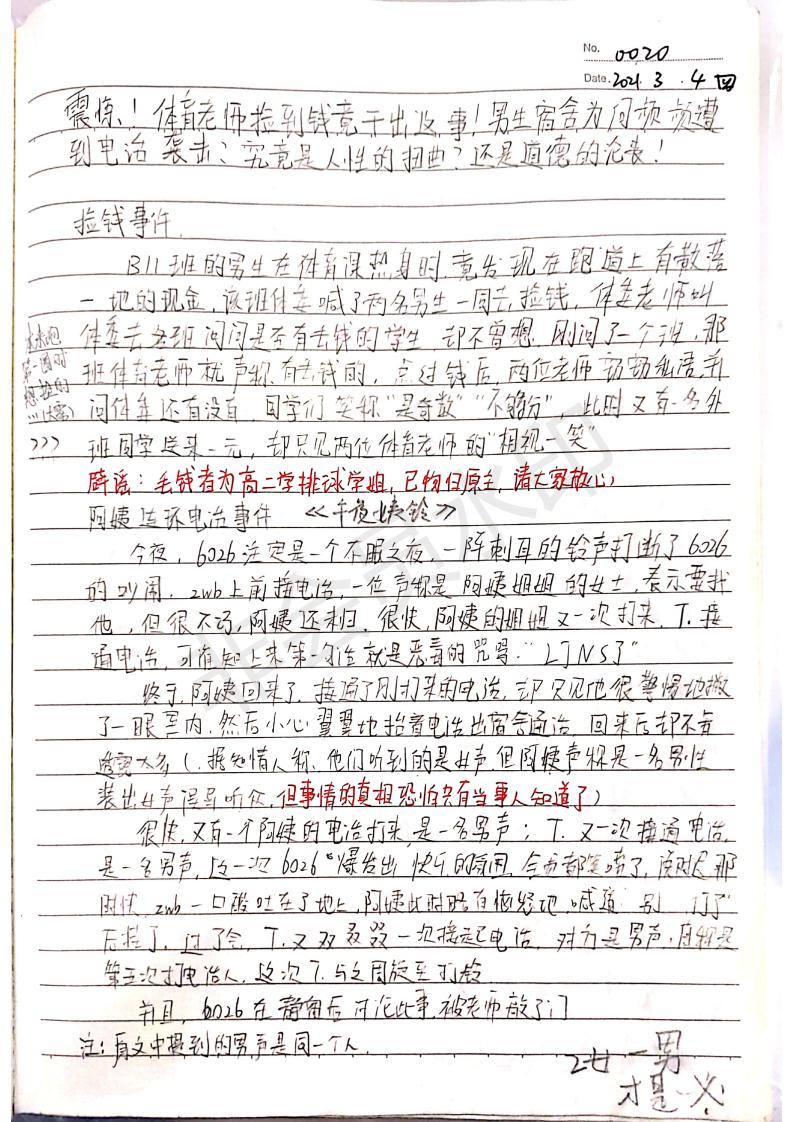 No. 0020
Date. 2021. 3. 4 四
震惊！体育老师捡到钱竟干出这事！男生宿舍为何频频遭
到电话袭击？究竟是人性的扭曲？还是道德的沦丧！
捡钱事件
B11班的男生在体育课热身时，竟发现在跑道上有散落
一地的现金，该班体委喊了两名男生一同去捡钱，体委老师叫
体委去各班问问是否有丢钱的学生，却不曾想，刚问了一个班，那
班体育老师就声称有丢钱的，点过钱后，两位老师窃窃私语，并
问体委还有没有，同学们笑称“是奇数”“不够分”，此时又有一名外
班同学送来一元，却只见两位体育老师的“相视一笑”
第一圈时
想捡的
>>>
辟谣：丢钱者为高二学排球学姐，已物归原主，请大家放心）
阿姨连环电话事件 《午夜姨铃》
今夜，6026注定是一个不眠之夜，一阵刺耳的铃声打断了6026
的吵闹，zwb上前接电话，一位声称是阿姨姐姐的女士，表示要找
他，但很不巧，阿姨还未归，很快，阿姨的姐姐又一次打来，T.接
通电话，可谁知上来第一句话就是恶毒的咒骂：“LJNS了”
终于，阿姨回来了，接通了刚打来的电话，却只见他很警惕地撇
了一眼室内，然后小心翼翼地抬着电话出宿舍通话，回来后却不肯
透露太多（据知情人称，他们听到的是女声，但阿姨声称是一名男性
装出女声误导听众，但事情的真相恐怕只有当事人知道了）
很快，又有一个阿姨的电话打来，是一名男声；T.又一次接通电话，
是一名男声，这一次6026爆发出快乐的氛围，全都笑嘻了，说时迟那
时快，zwb一口酸吐在了地上，阿姨此时略有恼怒地喊道：“别 打了”
后挂了，过了会，T.又双叒叕一次接起电话，对方是男声，自称是
第五次打电话人，这次T.与之周旋至打铃
并且，6026在静宿后讨论此事，被老师敲了门
注：有文中提到的男声是同一个人
一男
才是
非会员水印